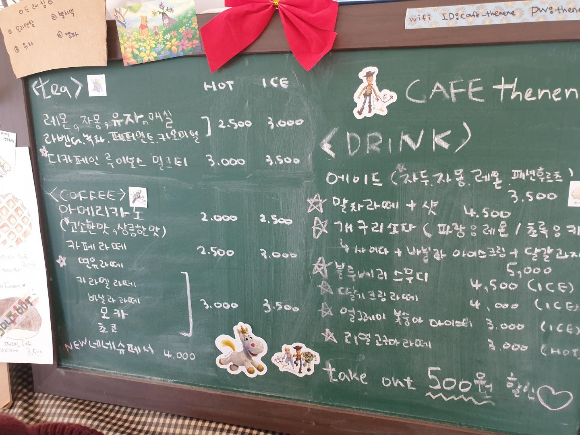 wifi ID:cafe-thenene PW:thenen
<tea> HOT ICE
레몬, 자몽, 유자, 매실
라벤더, 녹차, 페퍼민트, 카모마일 2.500 3.000
디카페인 루이보스 민트티 3.000 3.500
<COFFEE>
아메리카노 2.000 2.500
(고소한맛, 상큼한맛)
카페라떼 2.500 3.000
연유라떼
카라멜라떼
바닐라라떼 3.000 3.500
모카
초코
NEW 네네슈페너 4.000
CAFE thenen
<DRINK>
에이드 (자두, 자몽, 레몬 패션후르츠)
3.500
말차라떼 + 샷 4.500
개구리소다 (파랑은레몬 / 초록은
↳ 사이다 + 바닐라 아이스크림 + 달걀과
5,000
블루베리 스무디 4,500 (ICE)
딸기크림라떼 4,000 (ICE)
얼그레이 복숭아 아이스티 3.000 (ICE)
리얼 라떼 3.000 (HOT
take out 500원 할인